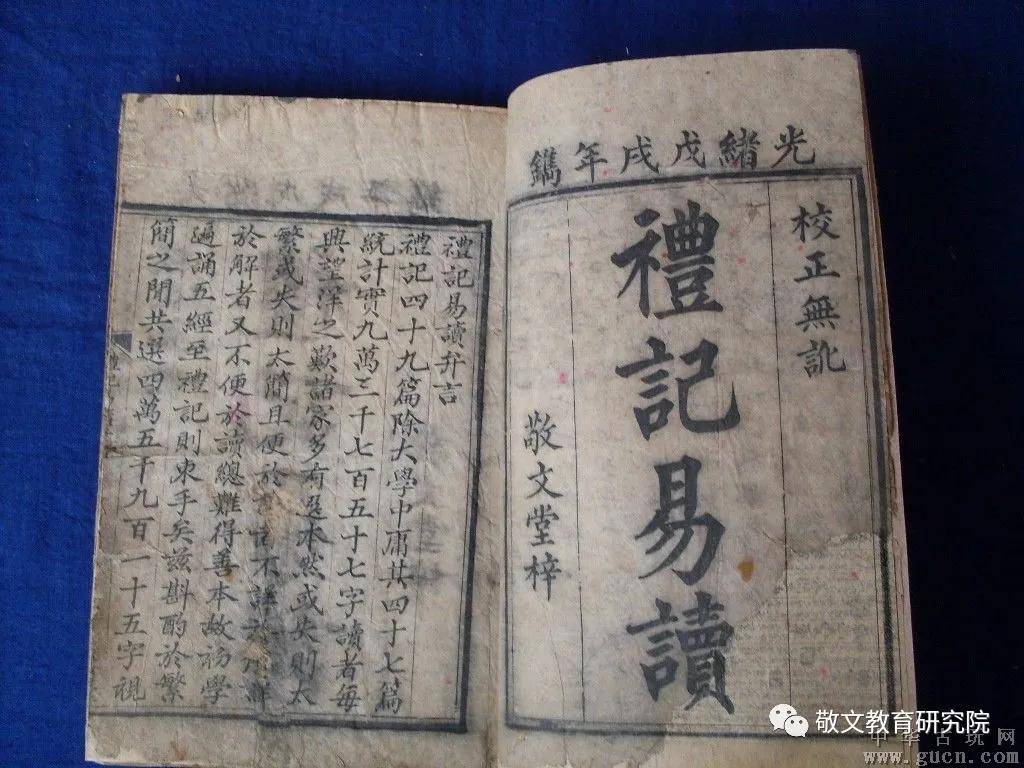 光緒戊戌年鐫
校正無訛
禮記易讀
敬文堂梓
禮記易讀弁言
禮記四十九篇除大學中庸其四十七篇
統計實九萬三千七百五十七字讀者每
興望洋之歎諸家多有選本然或失則太
繁或失則太簡且便於者不詳於詳
於解者又不便於讀總難得善本故初學
遍誦五經至禮記則束手矣茲斟酌於繁
簡之閒共選四萬五千九百一十五字視
敬文教育研究院
中华古玩网
www.gucn.com